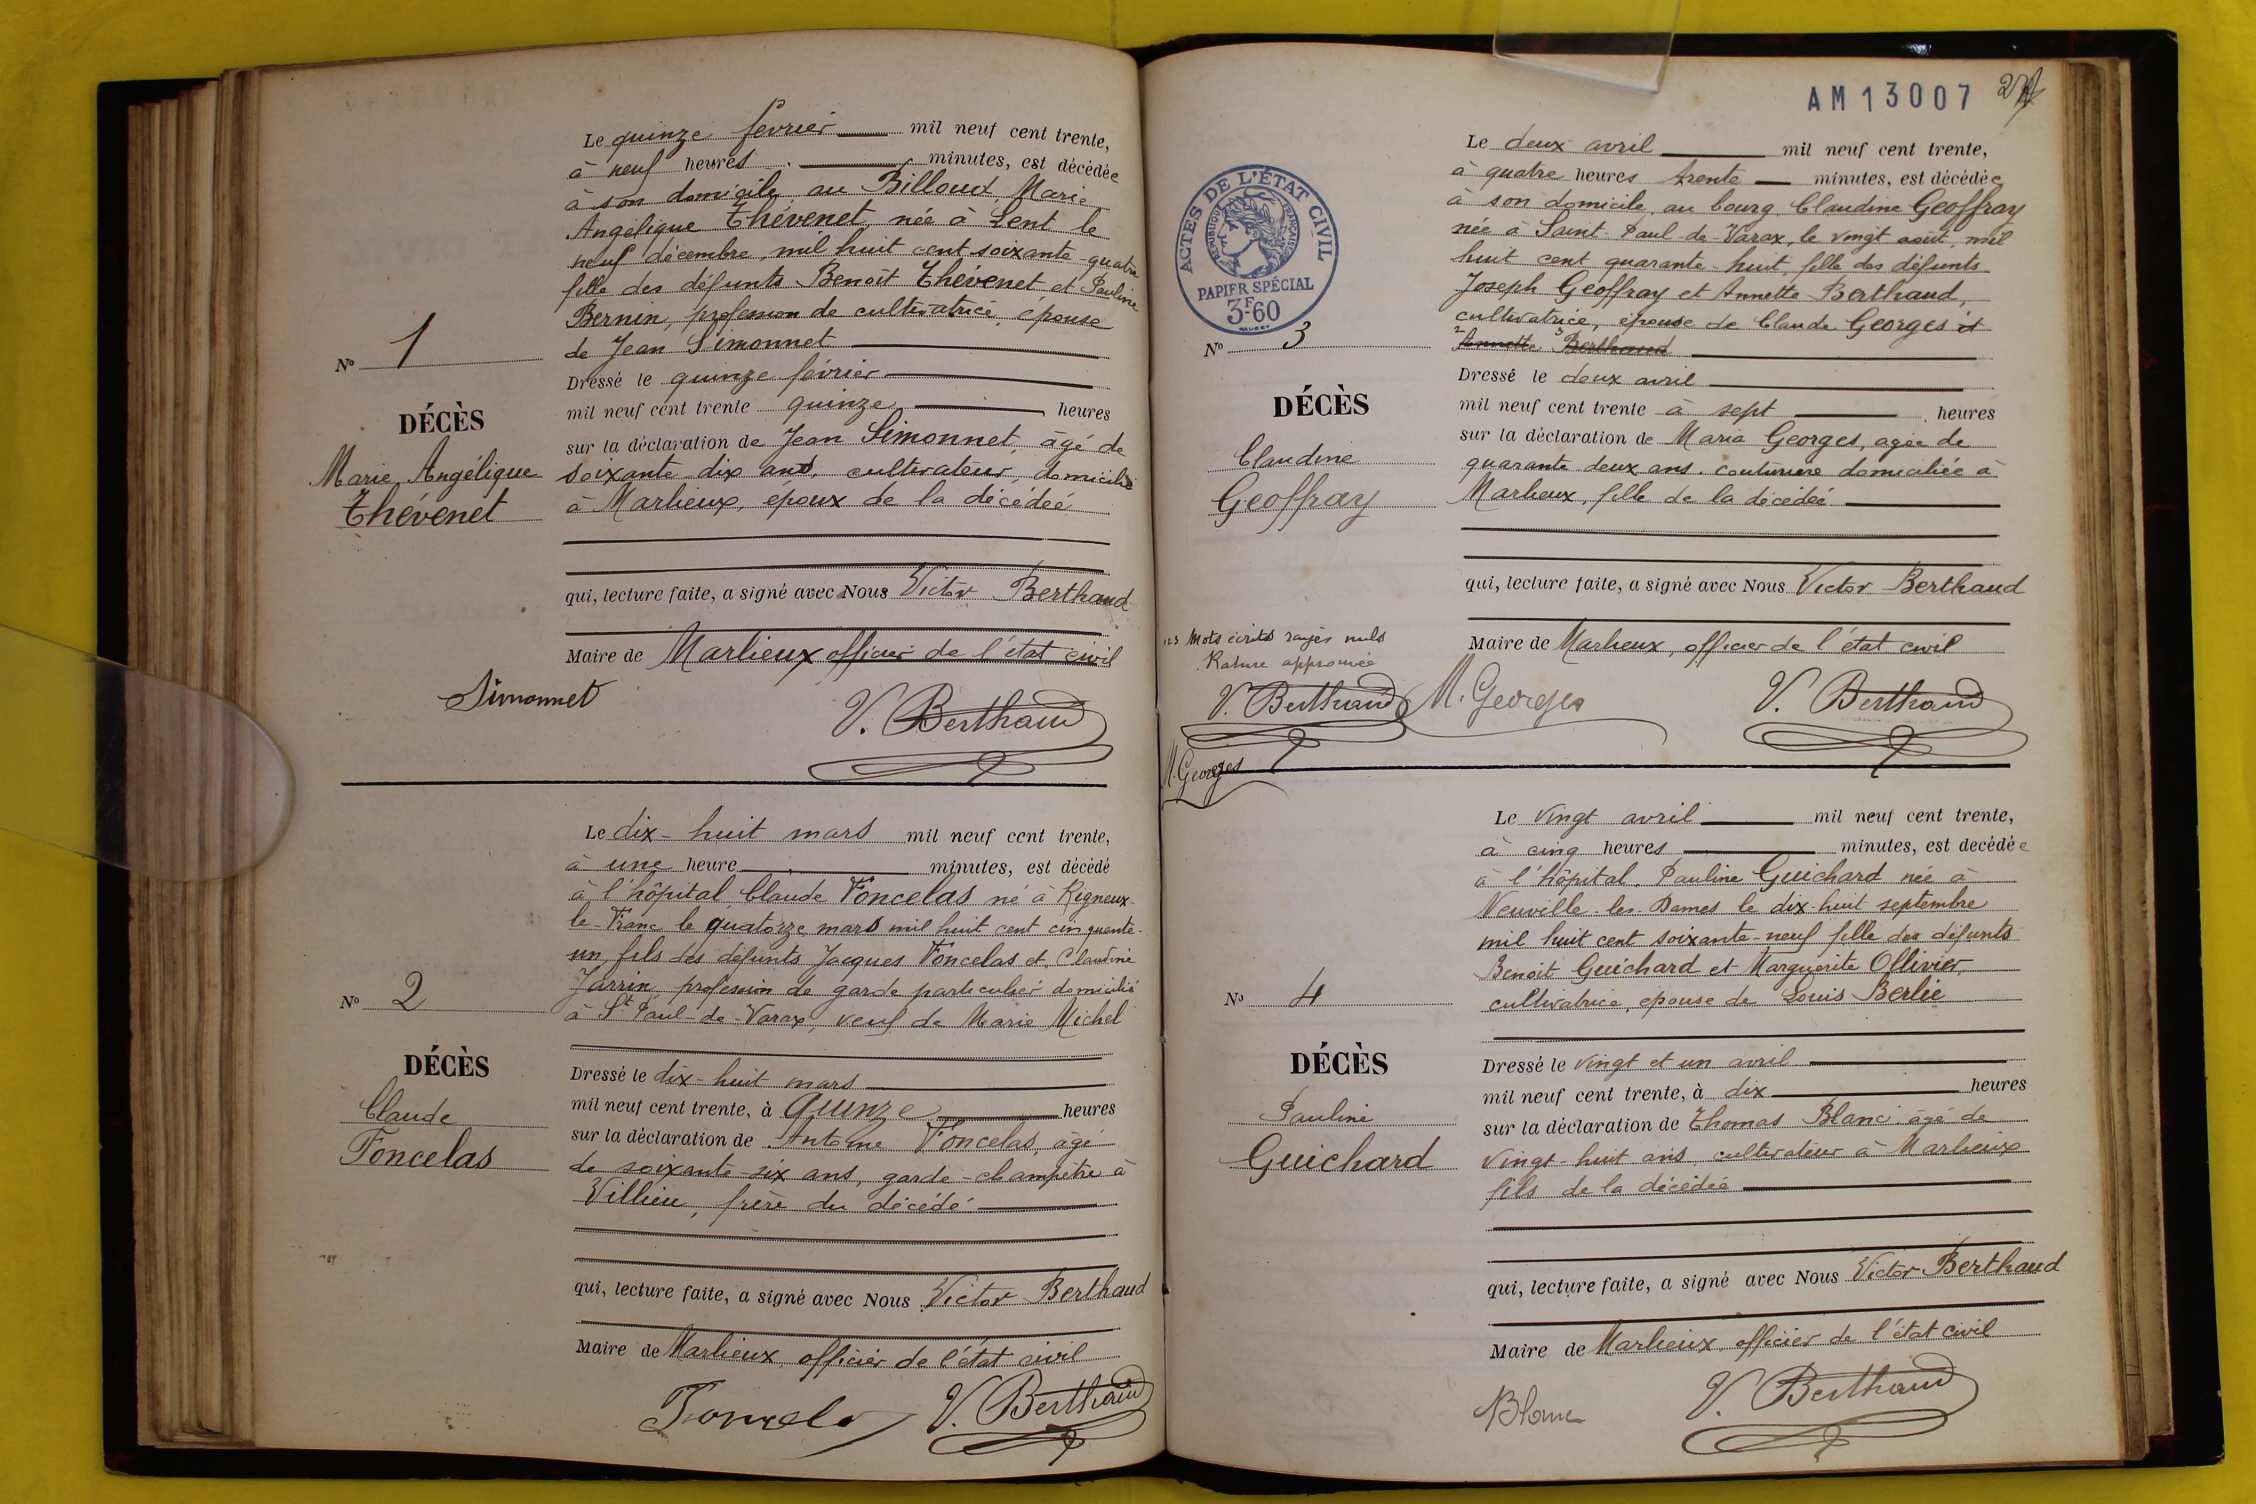 Le quinze février mil neuf cent trente,
à neuf heures minutes, est décédée
à son domicile au Billoud, Marie
Angélique Thévenet, née à Lent le
neuf décembre, mil huit cent soixante-quatre
fille des défunts Benoît Thévenet et Pauline
Bernin, profession de cultivatrice, épouse
de Jean Simonnet
Nº 1
Dressé le quinze février
mil neuf cent trente quinze heures
DÉCÈS
sur la déclaration de Jean Simonnet, âgé de
Marie Angélique
soixante dix ans, cultivateur, domicilié
Thévenet
à Marlieux, époux de la décédée
qui, lecture faite, a signé avec Nous Victor Berthaud
Maire de Marlieux officier de l'état civil
Simonnet
V. Berthaud
Le dix-huit mars mil neuf cent trente,
à une heure minutes, est décédé
à l'hôpital Claude Foncelas né à Rigneux-
le-Franc le quatorze mars mil huit cent cinquante-
un, fils des défunts Jacques Foncelas et Claudine
Jarrin, profession de garde particulier domicilié
Nº 2
à St Paul-de-Varax, veuf de Marie Michel
DÉCÈS
Dressé le dix-huit mars
Claude
mil neuf cent trente, à quinze heures
sur la déclaration de Antoine Foncelas, âgé
Foncelas
de soixante-six ans, garde-champêtre à
Villieu, frère du décédé
qui, lecture faite, a signé avec Nous Victor Berthaud
Maire de Marlieux, officier de l'état civil
Foncelas V. Berthaud
AM13007
Le deux avril mil neuf cent trente,
à quatre heures trente minutes, est décédée
à son domicile, au bourg Claudine Geoffray
née à Saint-Paul-de-Varax, le vingt août, mil
huit cent quarante-huit, fille des défunts
Joseph Geoffray et Annette Berthaud,
cultivatrice, épouse de Claude Georges et
2 Annette 3 Berthaud
ACTES DE L'ÉTAT CIVIL
RÉPUBLIQUE FRANÇAISE
PAPIER SPÉCIAL
3F60
Nº 3
Dressé le deux avril
DÉCÈS
mil neuf cent trente à sept heures
sur la déclaration de Maria Georges, agée de
Claudine
quarante-deux ans, couturière domiciliée à
Geoffray
Marlieux, fille de la décédée
qui, lecture faite, a signé avec Nous Victor Berthaud
1 2 3 Mots écrits rayés nuls
Rature approuvée
Maire de Marlieux, officier de l'état civil
V. Berthaud M. Georges V. Berthaud
M. Georges
Le vingt avril mil neuf cent trente,
à cinq heures minutes, est decédée
à l'hôpital, Pauline Guichard née à
Neuville-les-Dames le dix-huit septembre
mil huit cent soixante-neuf fille des défunts
Benoit Guichard et Marguerite Ollivier,
Nº 4
cultivatrice, épouse de Louis Berlie
DÉCÈS
Dressé le vingt et un avril
mil neuf cent trente, à dix heures
Pauline
sur la déclaration de Thomas Blanc âgé de
Guichard
vingt-huit ans, cultivateur à Marlieux
fils de la décédée
qui, lecture faite, a signé avec Nous Victor Berthaud
Maire de Marlieux, officier de l'état civil
Blanc
V. Berthaud